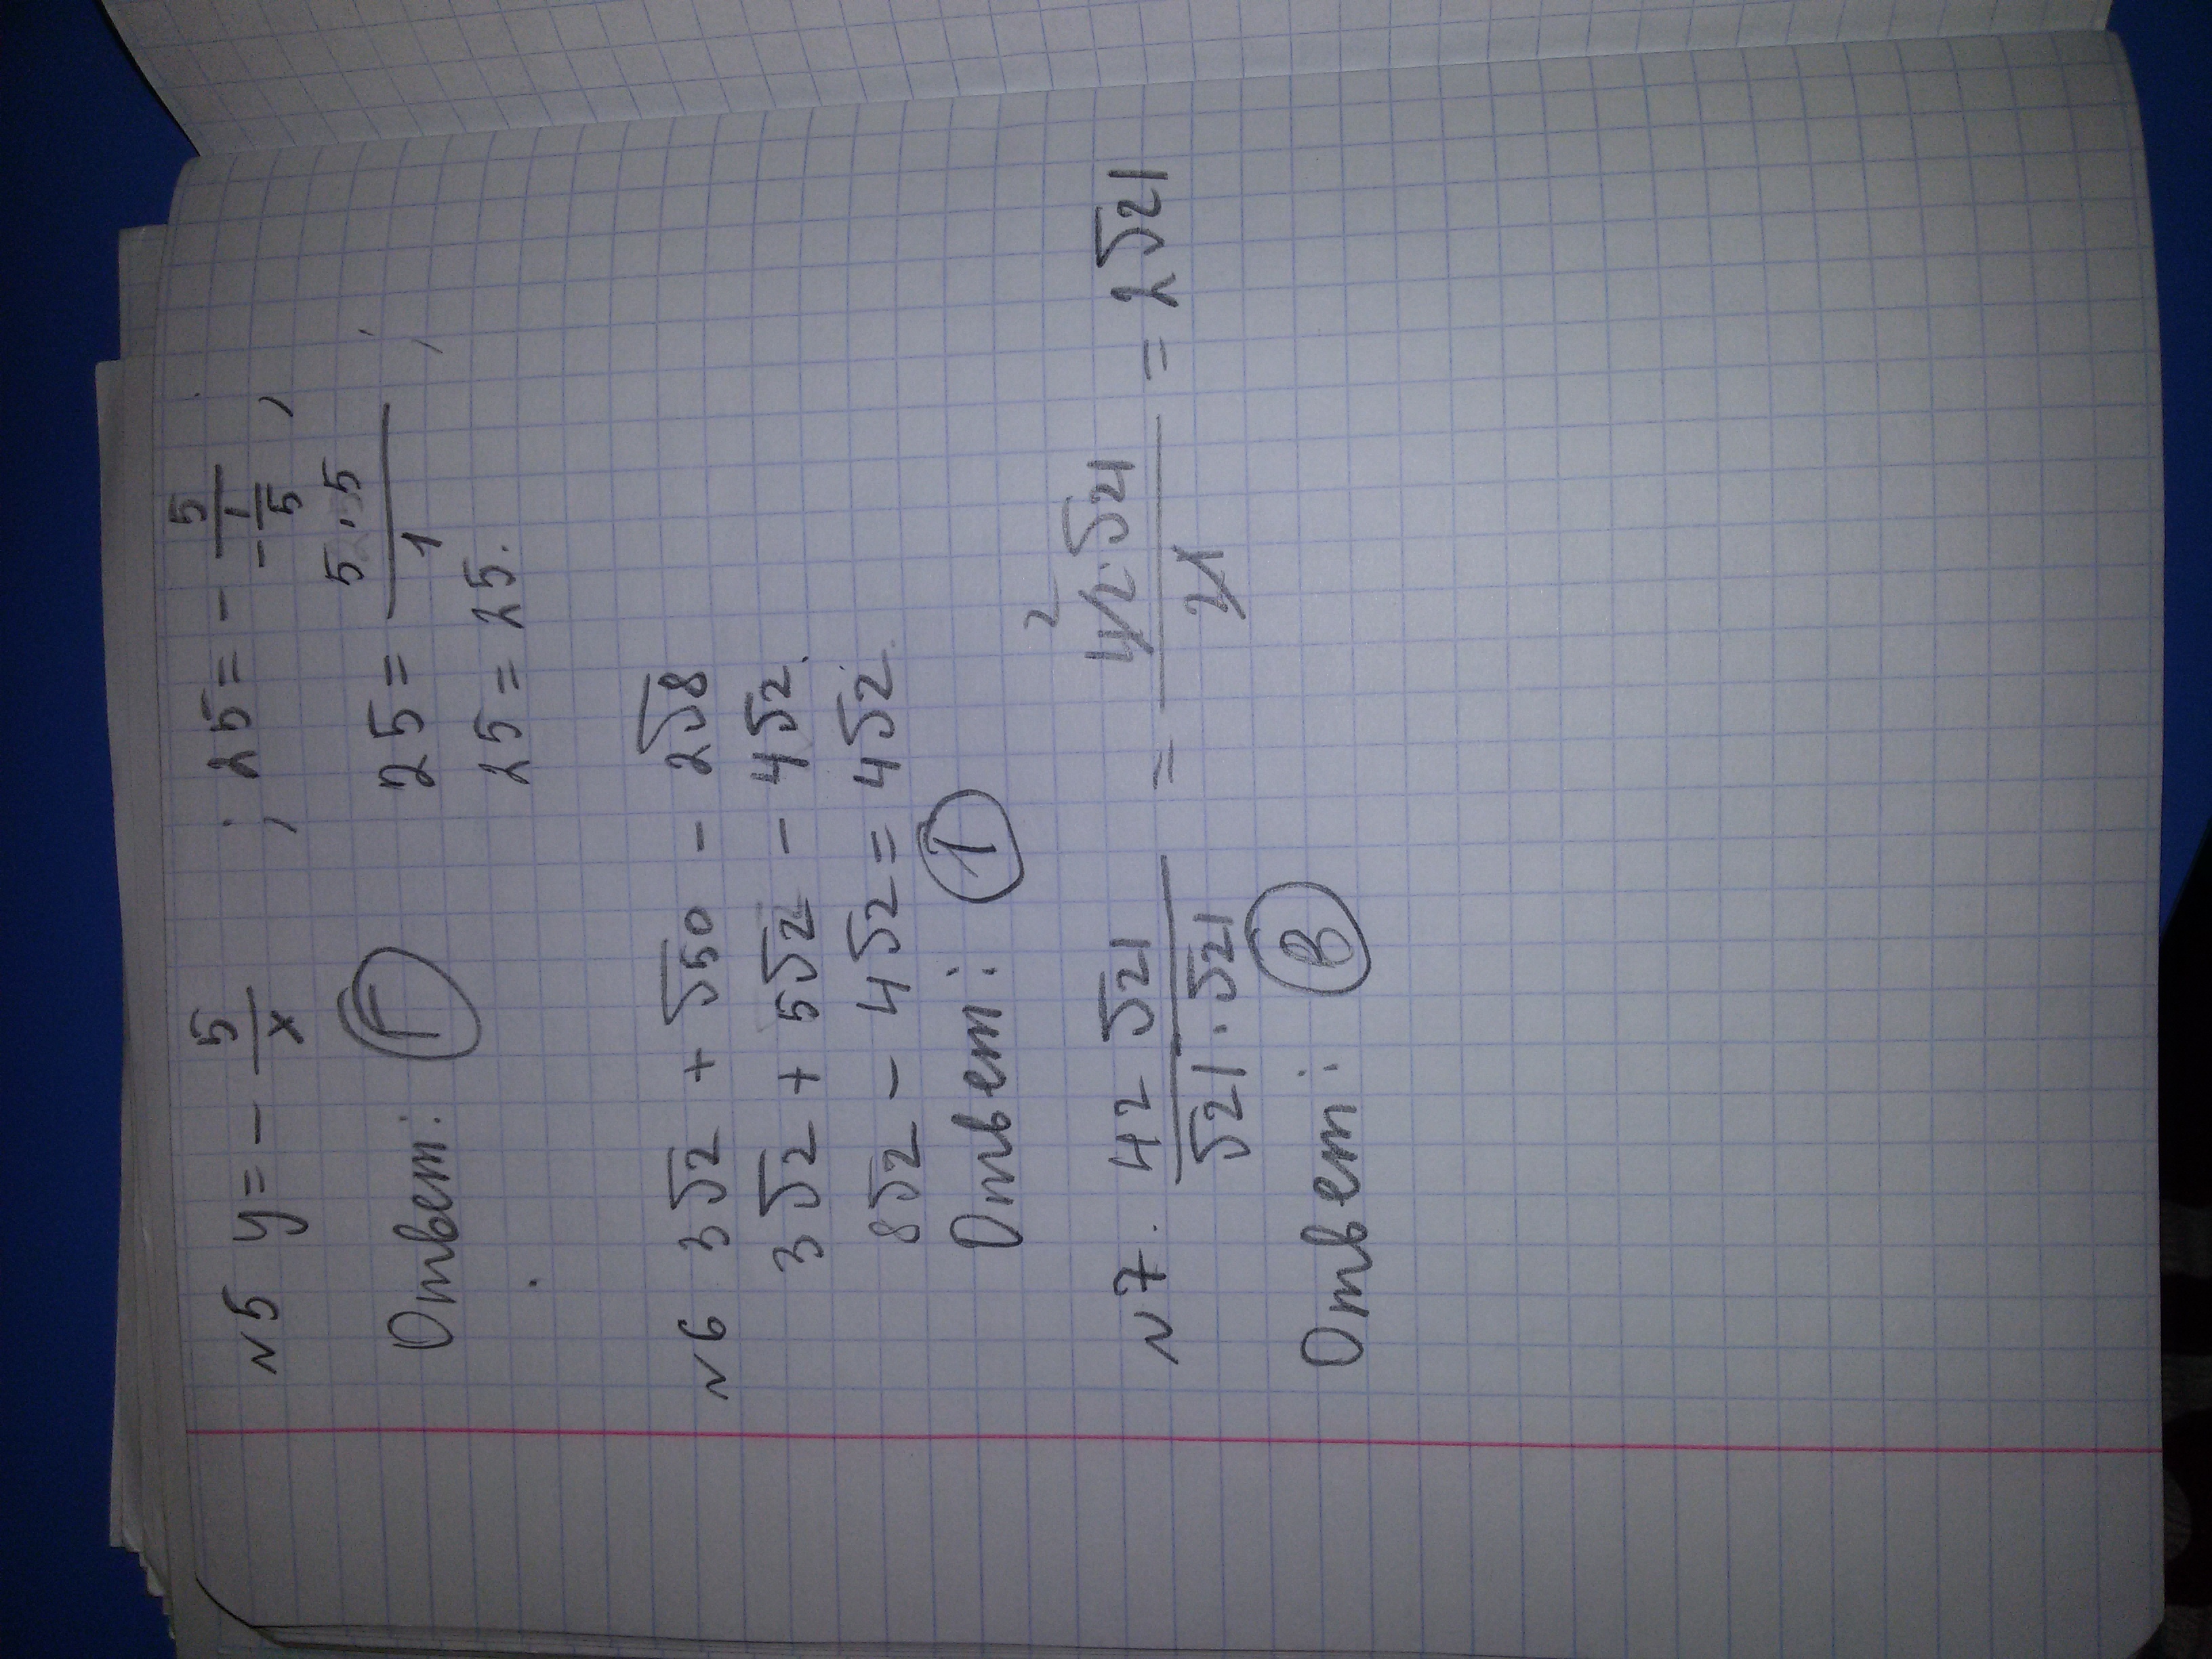 N5 y = - 5/x ; 25 = - 5/(-1/5) ;
Ответ: Г 25 = 5·5/1
25 = 25.
N6 3√2 + √50 - 2√8
3√2 + 5√2 - 4√2.
8√2 - 4√2 = 4√2.
Ответ: 1
N7. 42 √21/(√21 · √21) = 42·√21/21 2 = 2√21
Ответ: В